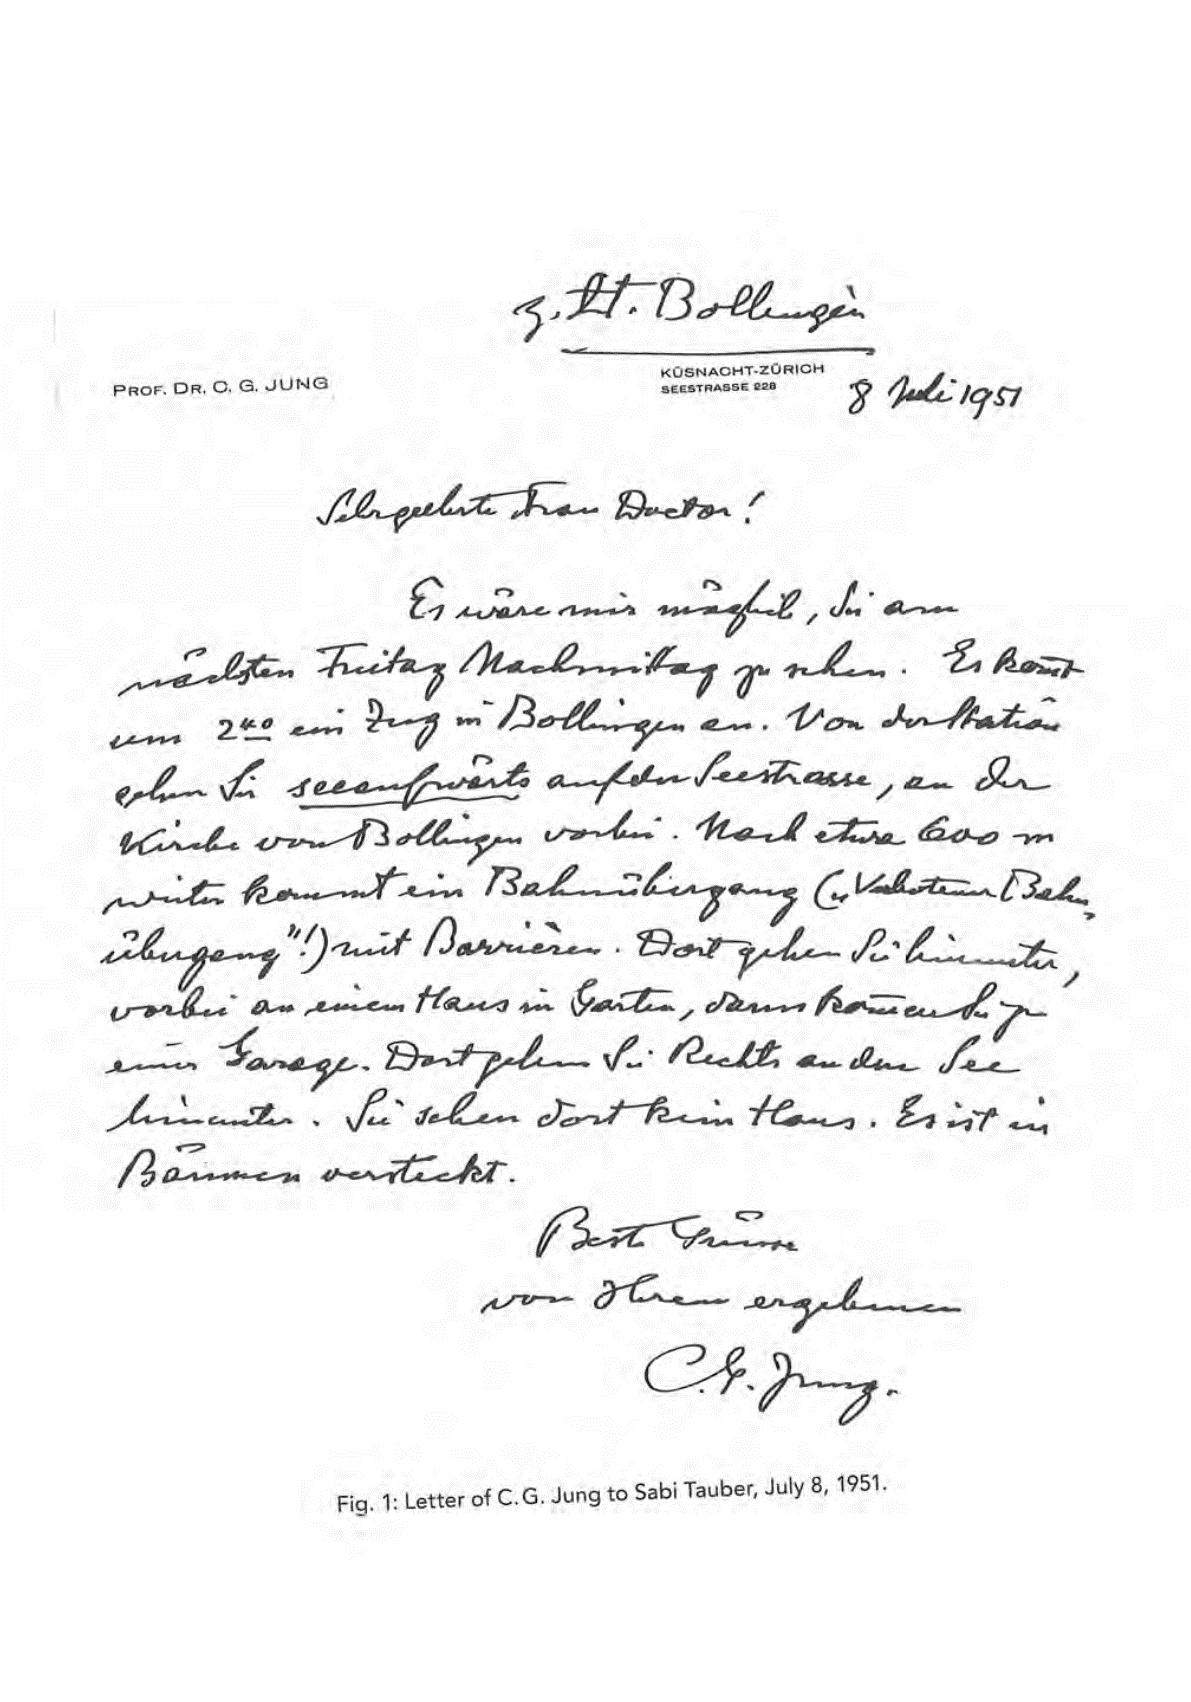 z. Zt. Bollingen
PROF. DR. C. G. JUNG
KÜSNACHT-ZÜRICH
SEESTRASSE 228
8 Juli 1951
Sehr geehrte Frau Doctor!
Es wäre mir möglich, Sie am
nächsten Freitag Nachmittag zu sehen. Es kom̄t
um 2⁴⁰ ein Zug in Bollingen an. Von der Station
gehen Sie seeaufwärts auf der Seestrasse, an der
Kirche von Bollingen vorbei. Nach etwa 600 m
weiter kommt ein Bahnübergang („Verbotener Bahn-
übergang"!) mit Barrièren. Dort gehen Sie hinunter,
vorbei an einem Haus in Garten, dann kom̄en Sie zu
einer Garage. Dort gehen Sie Rechts an den See
hinunter. Sie sehen dort kein Haus. Es ist in
Bäumen versteckt.
Beste Grüsse
von Ihrem ergebenen
C. G. Jung.
Fig. 1: Letter of C. G. Jung to Sabi Tauber, July 8, 1951.